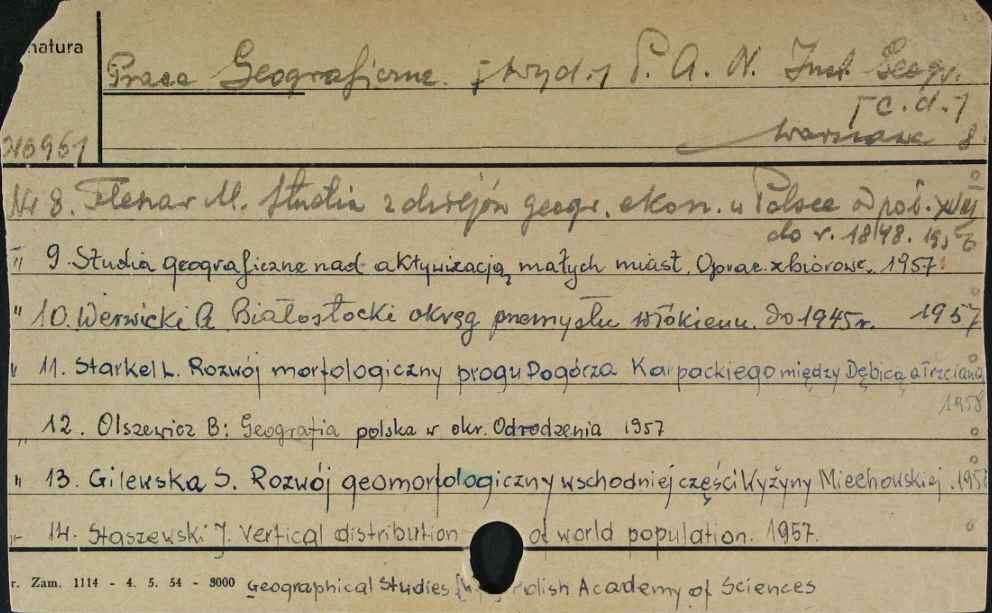 natura
Prace Geograficzne. [wyd.] P. A. N. Inst. Geogr.
[c. d.]
Warszawa 8.
Nr 8. Flesar M. Studia z dziejów geogr. ekon. w Polsce od poł. XVIII
do r. 1848. 1956
" 9. Studia geograficzne nad aktywizacją małych miast. Oprac. zbiorowe. 1957
" 10. Werwicki A. Białostocki okręg przemysłu włókienn. do 1945 r. 1957
" 11. Starkel L. Rozwój morfologiczny progu Pogórza Karpackiego między Dębicą a Trzcianą
1958
" 12. Olszewicz B: Geografia polska w okr. Odrodzenia 1957
" 13. Gilewska S. Rozwój geomorfologiczny wschodniej części Wyżyny Miechowskiej. 1958
" 14. Staszewski J. Vertical distribution of world population. 1957.
r. Zam. 1114 - 4. 5. 54 - 8000 Geographical Studies Polish Academy of Sciences